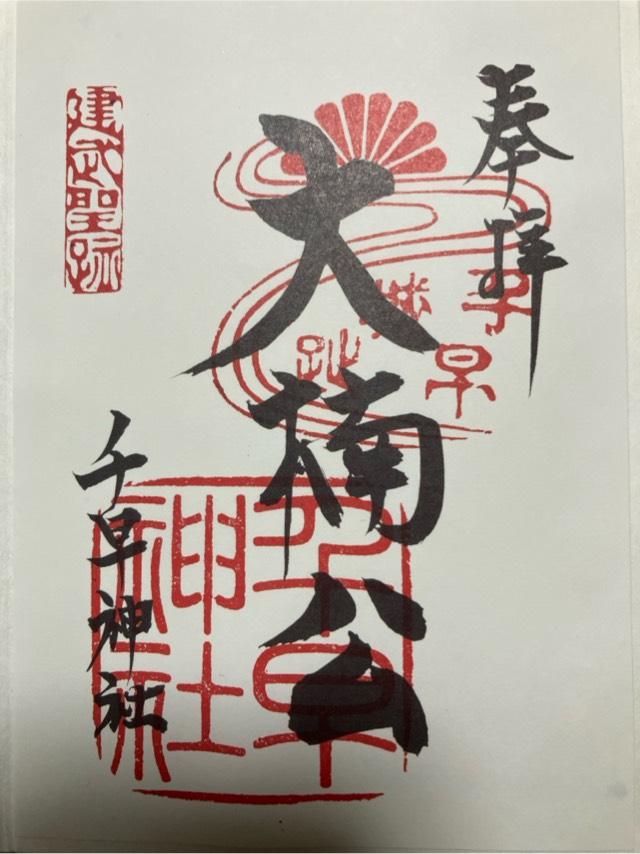 奉拝
千早
城址
大楠公
千早神社
建武聖跡
千早神社